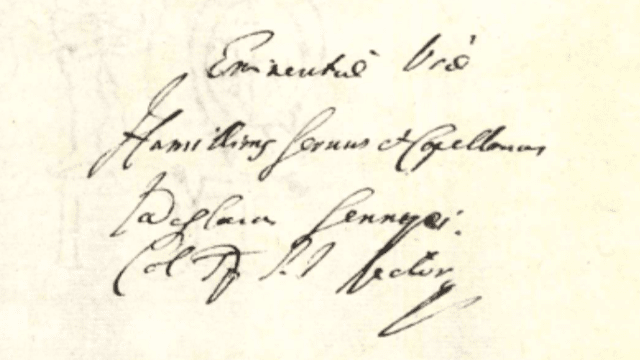 Eminentiae Vrae
Humillimus servus et Capellanus
Ladislaus Sennyei.
Col. S.J. Rector